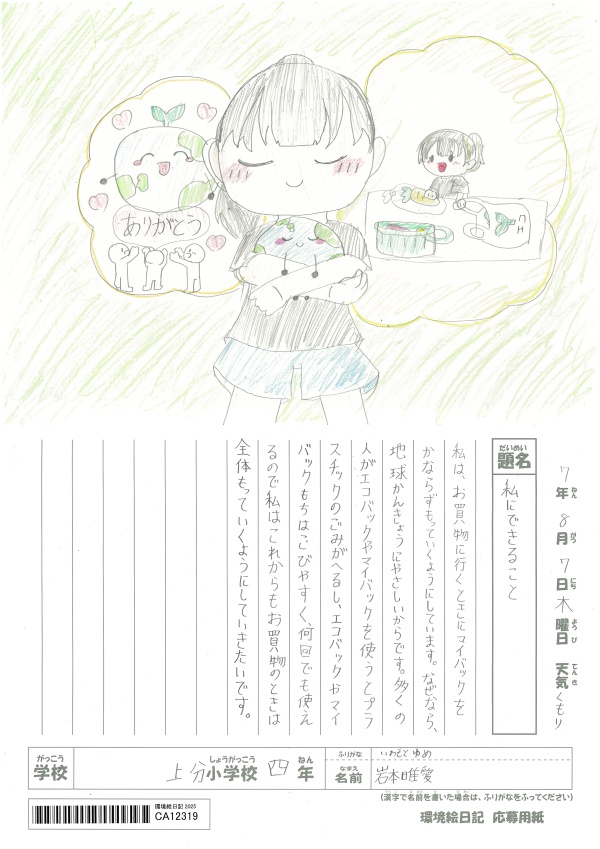 ありがとう
7年8月7日木曜日 天気くもり
ねん がつ にち ようび てんき
だいめい
題名
私にできること
私は、お買物に行くときにマイバックを
かならずもっていくようにしています。なぜなら、
地球かんきょうにやさしいからです。多くの
人がエコバックやマイバックを使うとプラ
スチックのごみがへるし、エコバックやマイ
バックもちはこびやすく、何回でも使え
るので私はこれからもお買物のときは
全体もっていくようにしていきたいです。
がっこう
学校
しょうがっこう ねん
上分小学校 四年
ふりがな
いわもと ゆめ
なまえ
名前
岩本唯愛
(漢字で名前を書いた場合は、ふりがなをふってください)
環境絵日記 2025
CA12319
環境絵日記 応募用紙